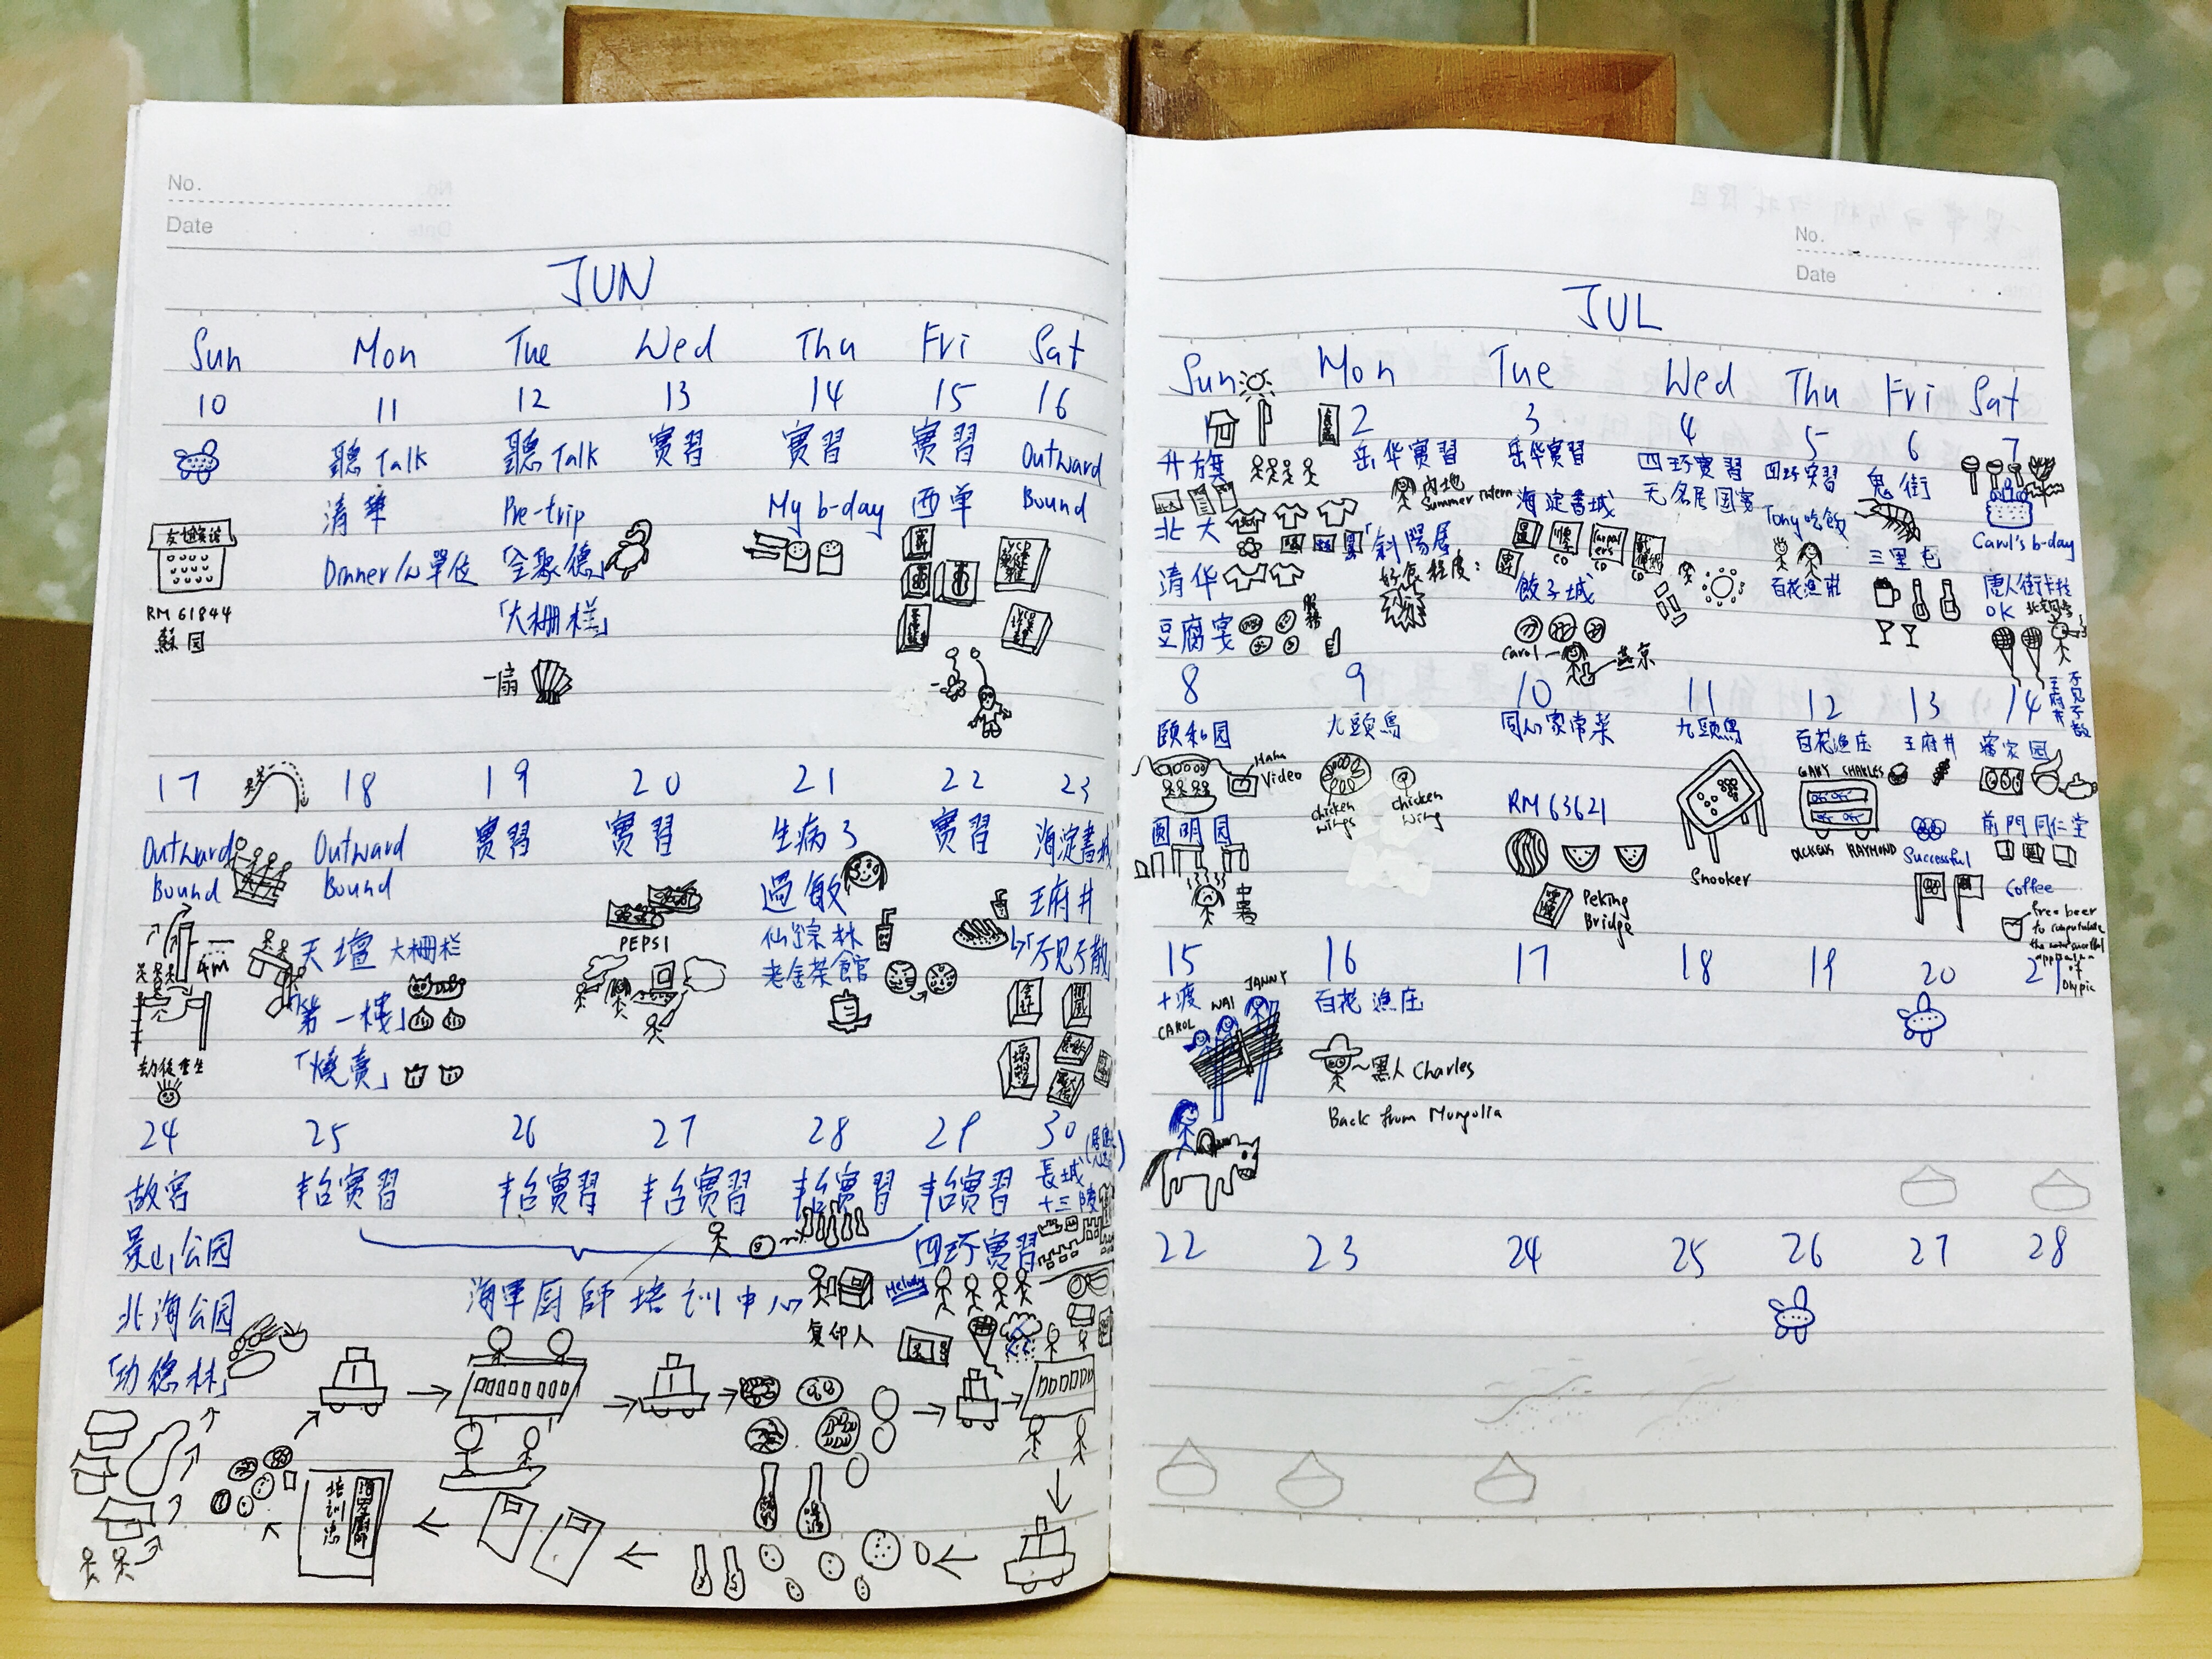 No.
Date
JUN
Sun Mon Tue Wed Thu Fri Sat
10 11 12 13 14 15 16
聽 Talk 聽 Talk 實習 實習 實習 Outward
清華 Pre-trip My b-day 西单 Bound
Dinner/w單位 「全聚德」
RM 61844 「大栅栏」
蘇园
一扇
17 18 19 20 21 22 23
Outward Outward 實習 實習 生病了 實習 海淀書城
Bound Bound 過敏 王府井
4m 天壇 大栅栏 PEPSI 仙踪林 「不见不散」
「第一樓」 老舍茶館
劫後重生 「燒賣」
24 25 26 27 28 29 30
故宮 丰台實習 丰台實習 丰台實習 丰台實習 丰台實習 長城
十三陵
景山公园 四环實習
北海公园 海軍厨師培训中心 Melody
复印人
「功德林」
No.
Date
JUL
Sun Mon Tue Wed Thu Fri Sat
1 2 3 4 5 6 7
升旗 岳华實習 岳华實習 四环實習 四环实習 鬼街
内地 Summer intern 海淀書城 无名居国宴 Tony吃飯
北大 「斜陽居 三里屯 Carol's b-day
清华 好食程度: CD CD CD 餃子城 百花漁莊 唐人街卡拉
豆腐宴 服務 OK
Carol 燕京
8 9 10 11 12 13 14 王府井 不见不散
頤和园 九頭鳥 同心家常菜 九頭鳥 百花漁庄 王府井 潘家园
Haha Video chicken wings chicken wing RM 63621 GARY CHARLES
圆明园 DICKENS RAYMOND Successful 前門同仁堂
中暑 Peking Bridge Snooker Coffee
free beer
15 16 17 18 19 20 21
十渡 百花漁庄
CAROL WAI JANNY
黑人 Charles
Back from Mungolia
22 23 24 25 26 27 28